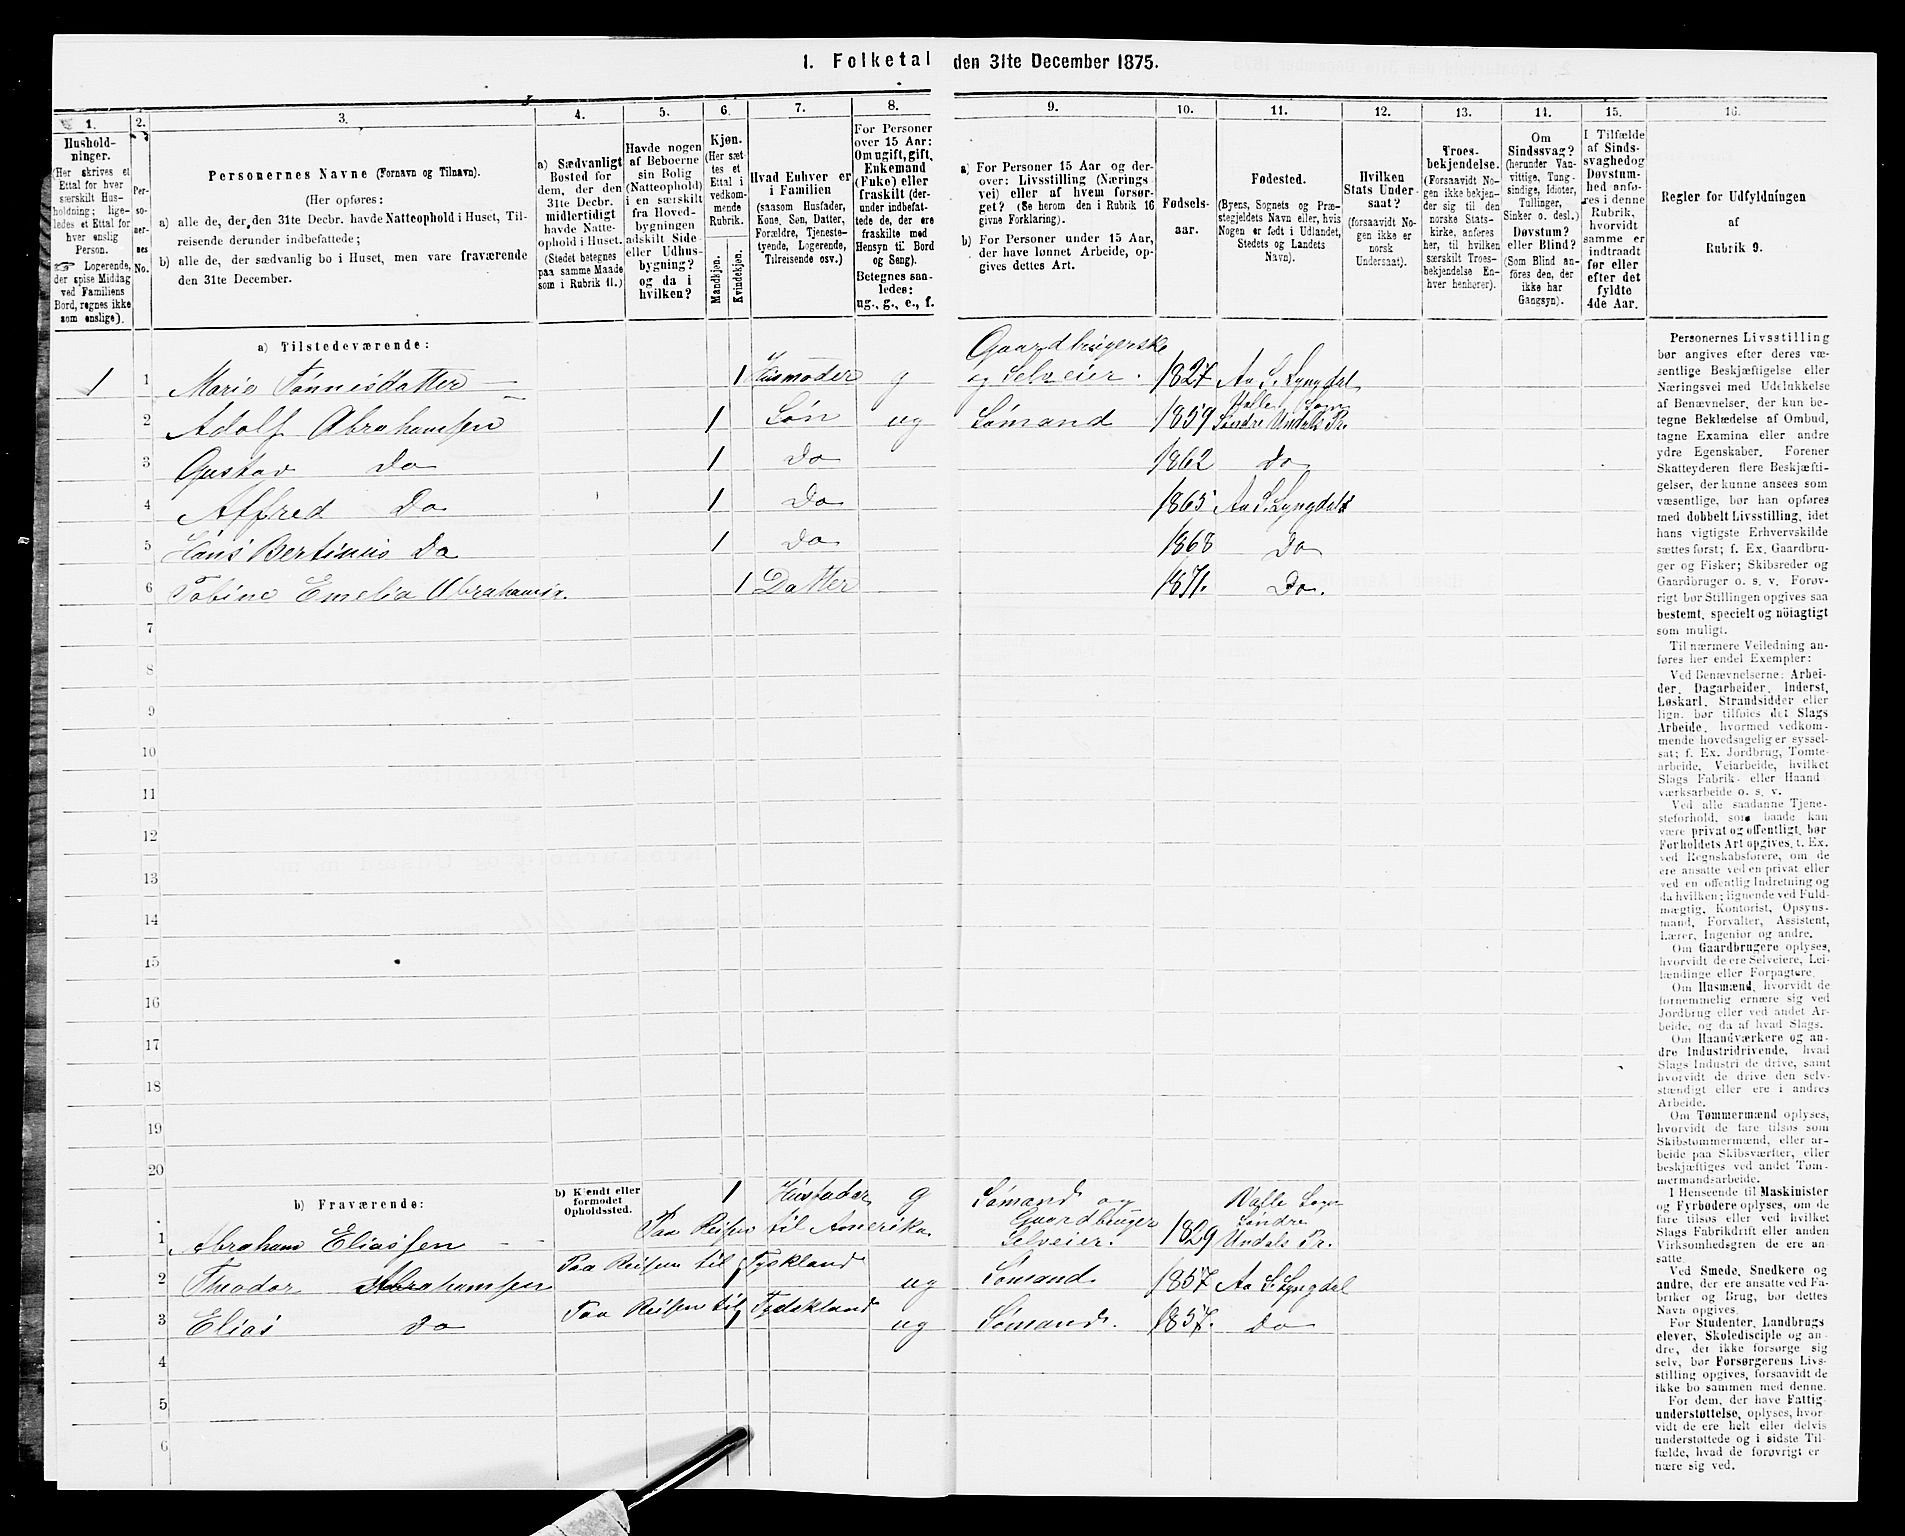 1. Folketal den 31te December 1875.
1.
Hushold-
ninger.
(Her skrives et
Ettal for hver
særskilt Hus-
holdning; lige-
ledes et Ettal for
hver enslig
Person.
☞ Logerende,
der spise Middag
ved Familiens
Bord, regnes ikke
som enslige).
2.
Per-
so-
ner-
nes
No.
3.
Personernes Navne (Fornavn og Tilnavn).
(Her opføres:
a) alle de, der den 31te Decbr. havde Natteophold i Huset, Til-
reisende derunder indbefattede;
b) alle de, der sædvanlig bo i Huset, men vare fraværende
den 31te December.
4.
a) Sædvanligt
Bosted for
dem, der den
31te Decbr.
midlertidigt
havde Natte-
ophold i Huset.
(Stedet betegnes
paa samme Maade
som i Rubrik 11.)
5.
Havde nogen
af Beboerne
sin Bolig
(Natteophold)
i en særskilt
fra Hoved-
bygningen
adskilt Side-
eller Udhus-
bygning?
og da i
hvilken?
6.
Kjøn.
(Her sæt-
tes et
Ettal i
vedkom-
mende
Rubrik.
Mandkjøn.
Kvindekjøn.
7.
Hvad Enhver er
i Familien
(saasom Husfader,
Kone, Søn, Datter,
Forældre, Tjeneste-
tyende, Logerende,
Tilreisende osv.)
8.
For Personer
over 15 Aar:
Om ugift, gift,
Enkemand
(Enke) eller
fraskilt (der-
under indbefat-
tede de, der ere
fraskilte med
Hensyn til Bord
og Seng).
Betegnes saa-
ledes:
ug., g., e., f.
9.
a) For Personer 15 Aar og der-
over: Livsstilling (Nærings
vei) eller af hvem forsør-
get? (Se herom den i Rubrik 16
givne Forklaring).
b) For Personer under 15 Aar,
der have lønnet Arbeide, op-
gives dettes Art.
10.
Fødsels-
aar.
11.
Fødested.
(Byens, Sognets og Præ-
stegjeldets Navn eller, hvis
Nogen er født i Udlandet,
Stedets og Landets
Navn).
12.
Hvilken
Stats Under-
saat?
(forsaavidt No-
gen ikke er
norsk
Undersaat).
13.
Troes-
bekjendelse.
(Forsaavidt No-
gen ikke bekjen-
der sig til den
norske Stats-
kirke, anføres
her, til hvilken
særskilt Troes-
bekjendelse En-
hver henhører).
14.
Om
Sindssvag?
(herunder Van-
vittige, Tung-
sindige, Idioter,
Tullinger,
Sinker o. desl.)
Døvstum?
eller Blind?
(Som Blind an-
føres den, der
ikke har
Gangsyn).
15.
I Tilfælde
af Sinds-
svaghed og
Døvstum-
hed anfø-
res i denne
Rubrik,
hvorvidt
samme er
indtraadt
før eller
efter det
fyldte
4de Aar.
16.
Regler for Udfyldningen
af
Rubrik 9.
a) Tilstedeværende:
1 1 Marie Tønnisdatter — 1 Husmoder g Gaardbrugerske
og Selveier. 1827 Aa S. Lyngdal
2 Adolf Abrahamsen 1 Søn ug Sømand 1859 Valle Sogn
Søndre Undals Pr.
3 Gustav Do 1 Do 1862 Do
4 Alfred Do 1 Do 1865 Aa S. Lyngdal
5 Hans Bertinius Do 1 Do 1868 Do
6 Tobine Emelia Abrahamsdr. 1 Datter 1871. Do.
7
8
9
10
11
12
13
14
15
16
17
18
19
20
b) Fraværende:
b) Kjendt eller
formodet
Opholdssted.
1 Abraham Eliassen - - Paa Reisen til Amerika 1 Husfader g Sømand og
Gaardbruger
Selveier. 1829 Valle Sogn
Søndre
Undals Pr.
2 Theodor Abrahamsen Paa Reisen til Tyskland 1 ug Sømand 1857 Aa S. Lyngdal
3 Elias Do Paa Reisen til Tydskland 1 ug Sømand. 1857. Do
4
5
6
Personernes Livsstilling
bør angives efter deres væ-
sentlige Beskjæftigelse eller
Næringsvei med Udelukkelse
af Benævnelser, der kun be-
tegne Beklædelse af Ombud,
tagne Examina eller andre
ydre Egenskaber. Forener
Skatteyderen flere Beskjæfti-
gelser, der kunne ansees som
væsentlige, bør han opføres
med dobbelt Livsstilling, idet
hans vigtigste Erhvervskilde
sættes først; f. Ex. Gaardbru-
ger og Fisker; Skibsreder og
Gaardbruger o. s. v. Forøv-
rigt bør Stillingen opgives saa
bestemt, specielt og nöiagtigt
som muligt.
Til nærmere Veiledning an-
føres her endel Exempler:
Ved Benævnelserne: Arbei-
der, Dagarbeider, Inderst,
Løskarl, Strandsidder eller
lign. bør tilføies det Slags
Arbeide, hvormed vedkom-
mende hovedsagelig er syssel-
sat; f. Ex. Jordbrug, Tomte-
arbeide, Veiarbeide, hvilket
Slags Fabrik- eller Haand-
værksarbeide o. s. v.
Ved alle saadanne Tjene-
steforhold, som baade kan
være privat og offentligt, bør
Forholdets Art opgives, t. Ex.
ved Regnskabsførere, om de
ere ansatte ved en privat eller
ved en offentlig Indretning og
da hvilken; lignende ved Fuld-
mægtig, Kontorist, Opsyns-
mand, Forvalter, Assistent,
Lærer, Ingeniør og andre.
Om Gaardbrugere oplyses,
hvorvidt de ere Selveiere, Lei-
lændinge eller Forpagtere.
Om Husmænd, hvorvidt de
fornemmelig ernære sig ved
Jordbrug eller ved andet Ar-
beide, og da af hvad Slags.
Om Haandværkere og an-
dre Industridrivende, hvad
Slags Industri de drive, samt
hvorvidt de drive den selv-
stændigt eller ere i andres
Arbeide.
Om Tømmermænd oplyses,
hvorvidt de fare tilsøs som
Skibstømmermænd, eller ar-
beide paa Skibsværfter, eller
beskjæftiges ved andet Tøm-
mermandsarbeide.
I Henseende til Maskinister
og Fyrbødere oplyses, om de
fare tilsøs eller ved hvilket
Slags Fabrikdrift eller anden
Virksomhedsgren de ere an-
satte.
Ved Smede, Snedkere og
andre, der ere ansatte ved Fa-
briker og Brug, bør dettes
Navn opgives.
For Studenter, Landbrugs
elever, Skoledisciple og an-
dre, der ikke forsørge sig
selv, bør Forsørgerens Livs-
stilling opgives, forsaavidt de
ikke bo sammen med denne.
For dem, der have Fattig-
understøttelse, oplyses, hvor-
vidt de ere helt eller delvis
understøttede og i sidste Til-
fælde, hvad de forøvrigt er-
nære sig ved.